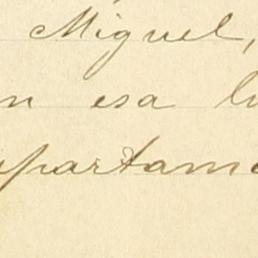 Miguel,
en esa lu
epartame